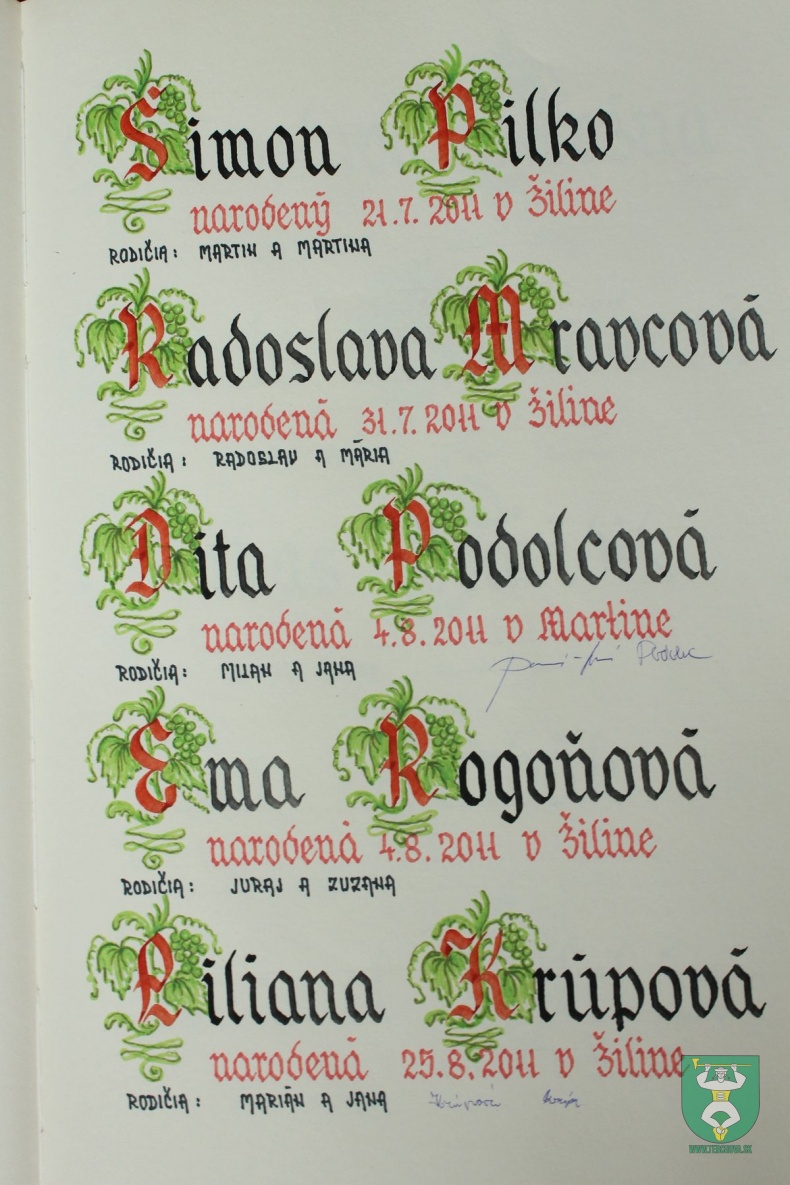 Šimon Pilko
narodený 21.7.2011 v Žiline
RODIČIA: MARTIN A MARTINA
Radoslava Mravcová
narodená 31.7.2011 v Žiline
RODIČIA: RADOSLAV A MÁRIA
Dita Podolcová
narodená 4.8.2011 v Martine
RODIČIA: MILAN A JANA
Ema Rogoňová
narodená 4.8.2011 v Žiline
RODIČIA: JURAJ A ZUZANA
Liliana Krúpová
narodená 25.8.2011 v Žiline
RODIČIA: MARIÁN A JANA
Krúpová
WWW.TERCHOVA.SK